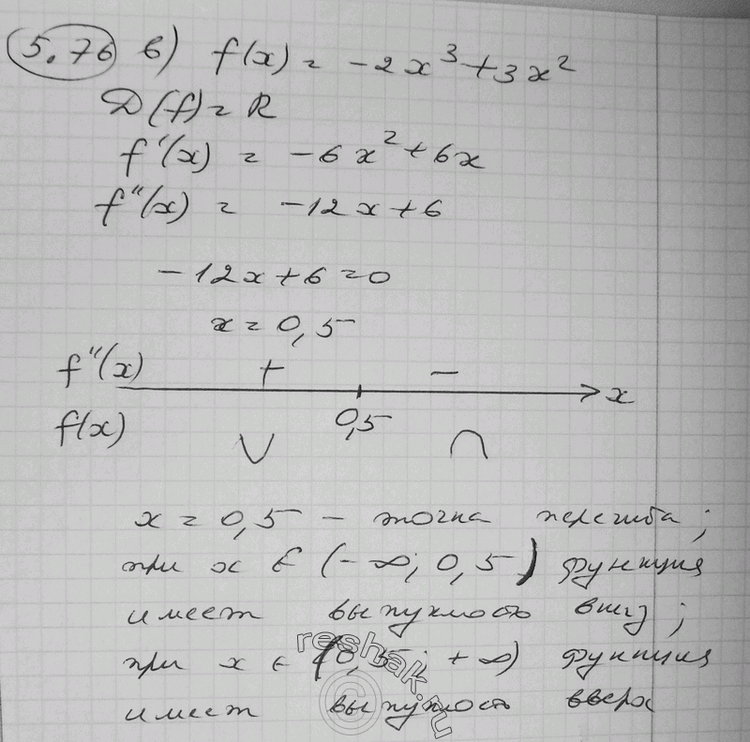 5.76 б) f(x) = -2x³+3x²
D(f) = R
f'(x) = -6x²+6x
f''(x) = -12x+6
-12x+6=0
x=0,5
f''(x) + - x
f(x) 0,5
x = 0,5 - точка перегиба;
при x ∈ (-∞; 0,5) функция
имеет выпуклость вниз;
reshak.ru
при x ∈ (0,5; +∞) функция
имеет выпуклость вверх